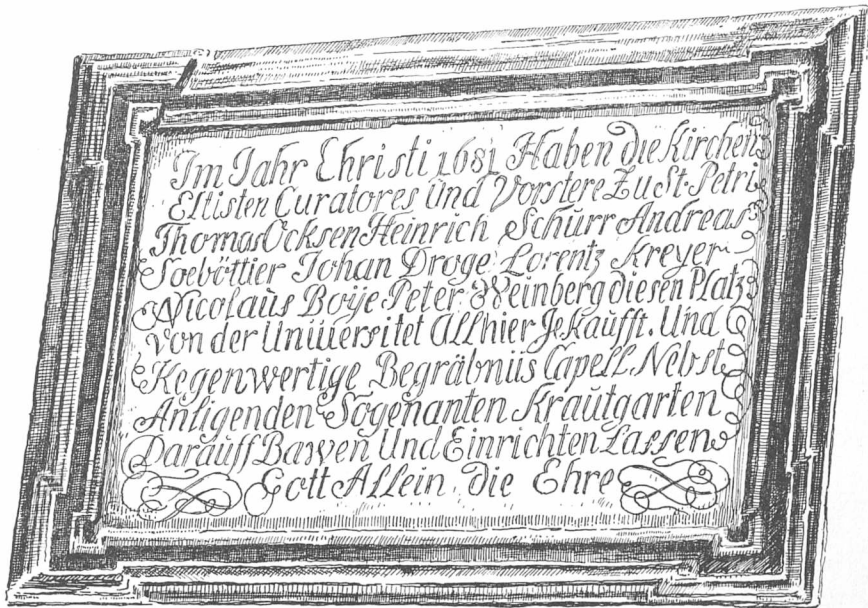 Im Jahr Christi 1681 Haben die Kirchen
Eltisten Curatores Und Vorstere Zu St. Petri
Thomas Ocksen Heinrich Schürr Andreas
Soeböttier Johan Droge Lorentz Kreyer
Nicolaüs Boÿe Peter Weinberg diesen Platz
von der Uniuersitet Allhier Jekaufft. Und
Kegenwertige Begräbnüs Capell Nebst
Anligenden Sogenanten Kraütgarten
Darauff Bawen Und Einrichten Lassen
Gott Allein die Ehre